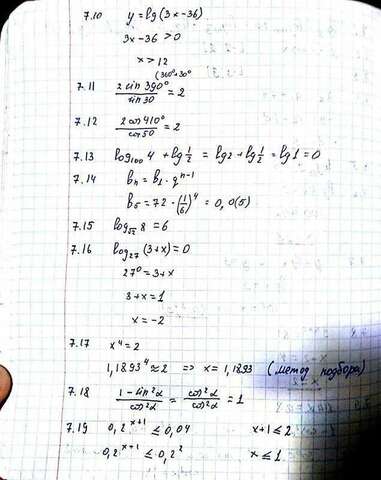 7.10 y = lg(3x-36)
3x-36 > 0
x > 12
(360°+30°
7.11 2 sin 390° / sin 30 = 2
7.12 2 cos 410° / cos 50 = 2
7.13 log₁₀₀ 4 + lg 1/2 = lg 2 + lg 1/2 = lg 1 = 0
7.14 bₙ = b₁ · qⁿ⁻¹
b₅ = 72 · (1/6)⁴ = 0,0(5)
7.15 log√2 8 = 6
7.16 log₂₇ (3+x) = 0
27⁰ = 3+x
3+x = 1
x = -2
7.17 x⁴ = 2
1,1893⁴ ≈ 2 => x = 1,1893 (метод подбора)
7.18 1 - sin²α / cos²α = cos²α / cos²α = 1
7.19 0,2ˣ⁺¹ ≤ 0,04 x+1 ≤ 2
0,2ˣ⁺¹ ≤ 0,2² x ≤ 1